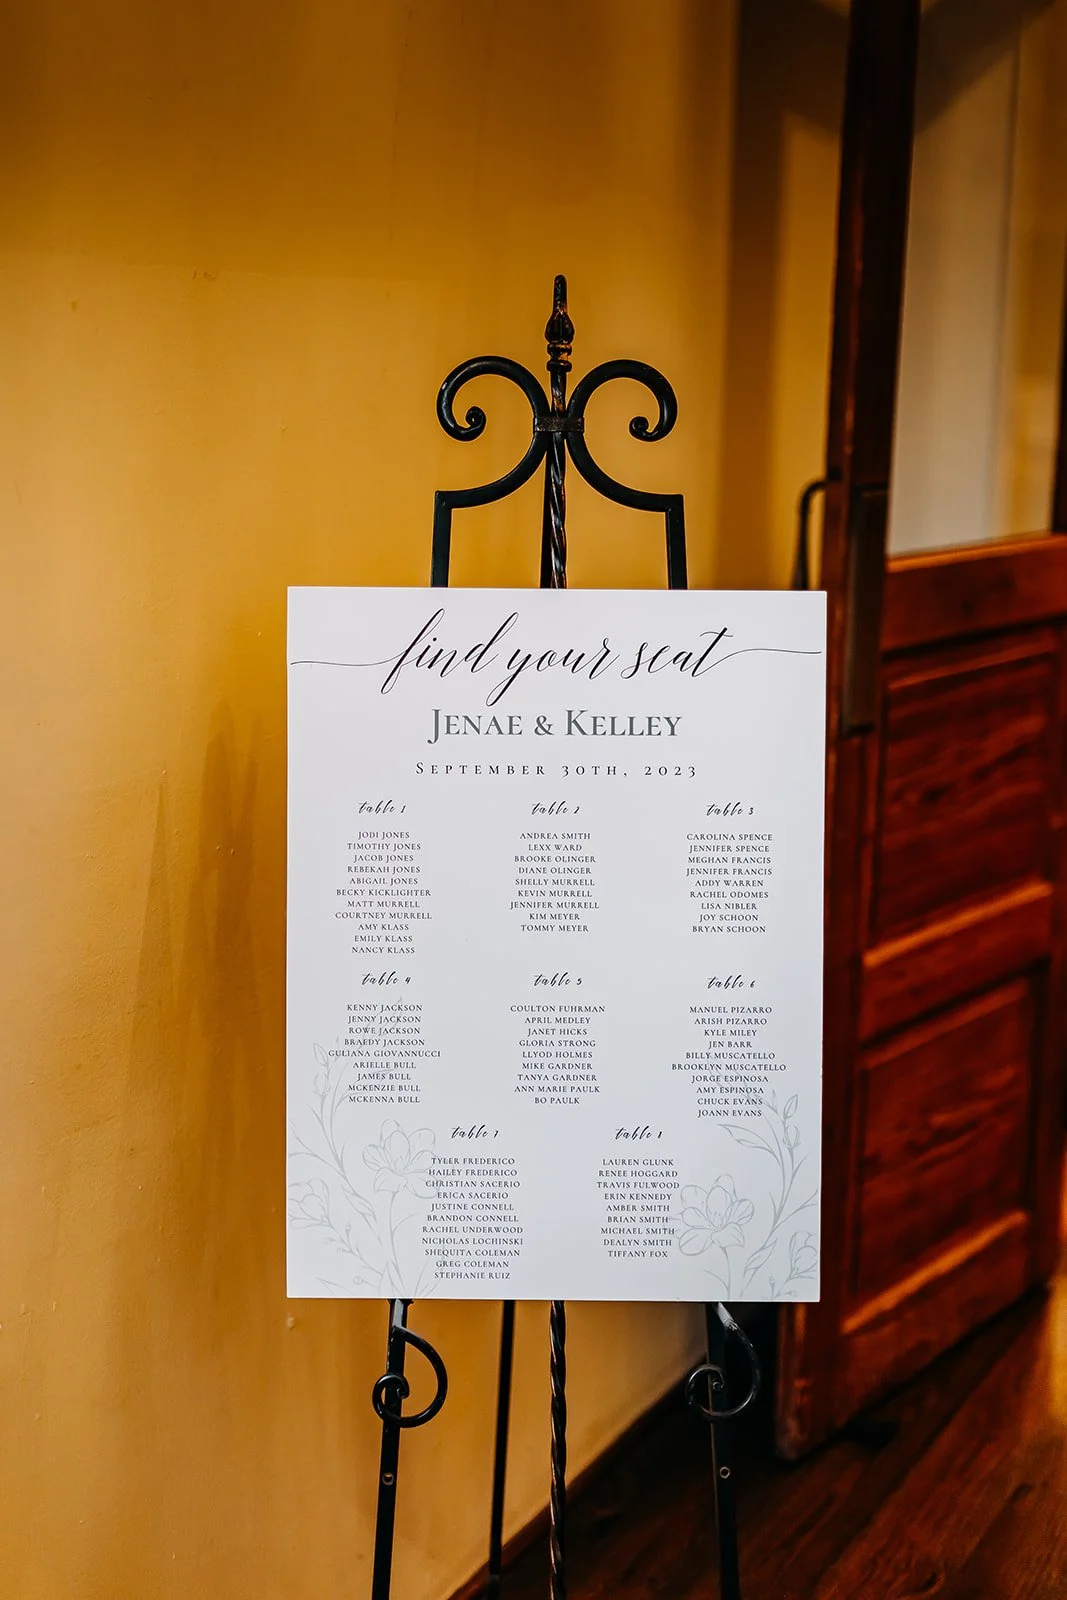 find your seat
JENAE & KELLEY
SEPTEMBER 30TH, 2023
table 1
JODI JONES
TIMOTHY JONES
JACOB JONES
REBEKAH JONES
ABIGAIL JONES
BECKY KICKLIGHTER
MATT MURRELL
COURTNEY MURRELL
AMY KLASS
EMILY KLASS
NANCY KLASS
table 2
ANDREA SMITH
LEXX WARD
BROOKE OLINGER
DIANE OLINGER
SHELLY MURRELL
KEVIN MURRELL
JENNIFER MURRELL
KIM MEYER
TOMMY MEYER
table 3
CAROLINA SPENCE
JENNIFER SPENCE
MEGHAN FRANCIS
JENNIFER FRANCIS
ADDY WARREN
RACHEL ODOMES
LISA NIBLER
JOY SCHOON
BRYAN SCHOON
table 4
KENNY JACKSON
JENNY JACKSON
ROWE JACKSON
BRAEDY JACKSON
GULIANA GIOVANNUCCI
ARIELLE BULL
JAMES BULL
MCKENZIE BULL
MCKENNA BULL
table 5
COULTON FUHRMAN
APRIL MEDLEY
JANET HICKS
GLORIA STRONG
LLYOD HOLMES
MIKE GARDNER
TANYA GARDNER
ANN MARIE PAULK
BO PAULK
table 6
MANUEL PIZARRO
ARISH PIZARRO
KYLE MILEY
JEN BARR
BILLY MUSCATELLO
BROOKLYN MUSCATELLO
JORGE ESPINOSA
AMY ESPINOSA
CHUCK EVANS
JOANN EVANS
table 7
TYLER FREDERICO
HAILEY FREDERICO
CHRISTIAN SACERIO
ERICA SACERIO
JUSTINE CONNELL
BRANDON CONNELL
RACHEL UNDERWOOD
NICHOLAS LOCHINSKI
SHEQUITA COLEMAN
GREG COLEMAN
STEPHANIE RUIZ
table 8
LAUREN GLUNK
RENEE HOGGARD
TRAVIS FULWOOD
ERIN KENNEDY
AMBER SMITH
BRIAN SMITH
MICHAEL SMITH
DEALYN SMITH
TIFFANY FOX